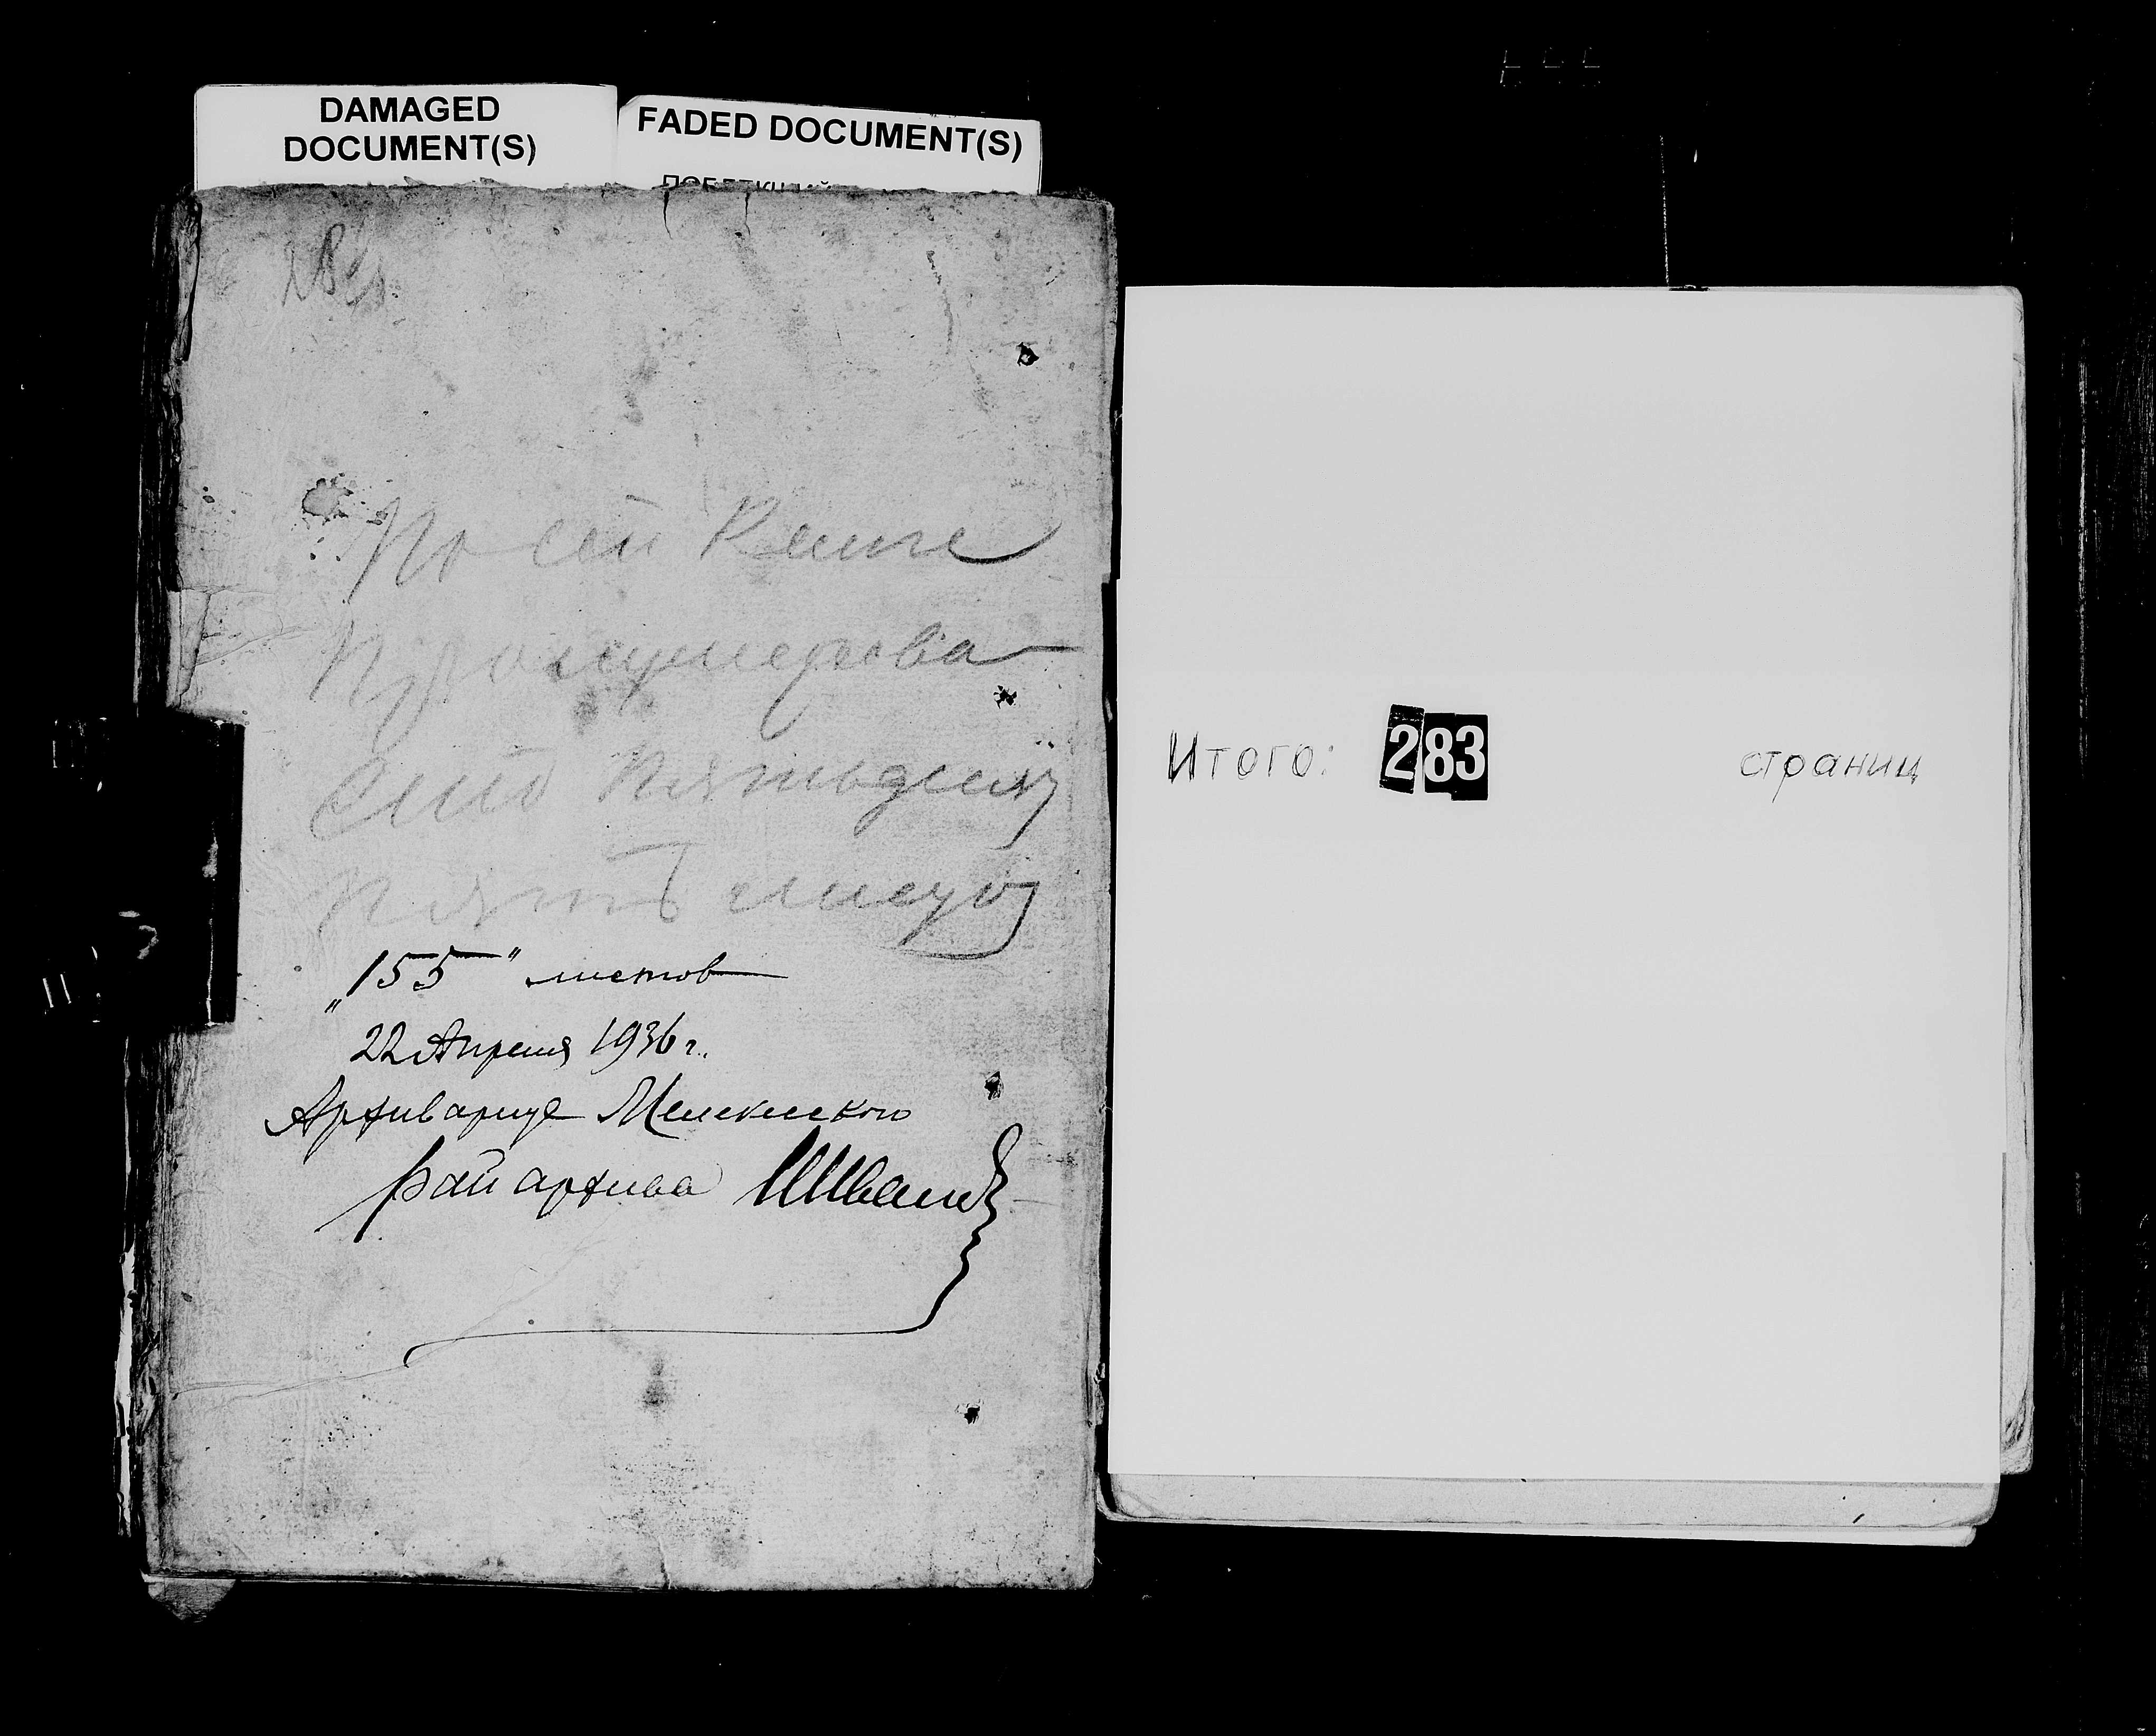 DAMAGED
DOCUMENT(S)
FADED DOCUMENT(S)
По сей Книге
Пронумерова
Сто Пятьдесят
Пять листов
"155" листов
22 Апреля 1936 г.
Архивариус Мелекесского
Райархива
Итого: 283 страниц